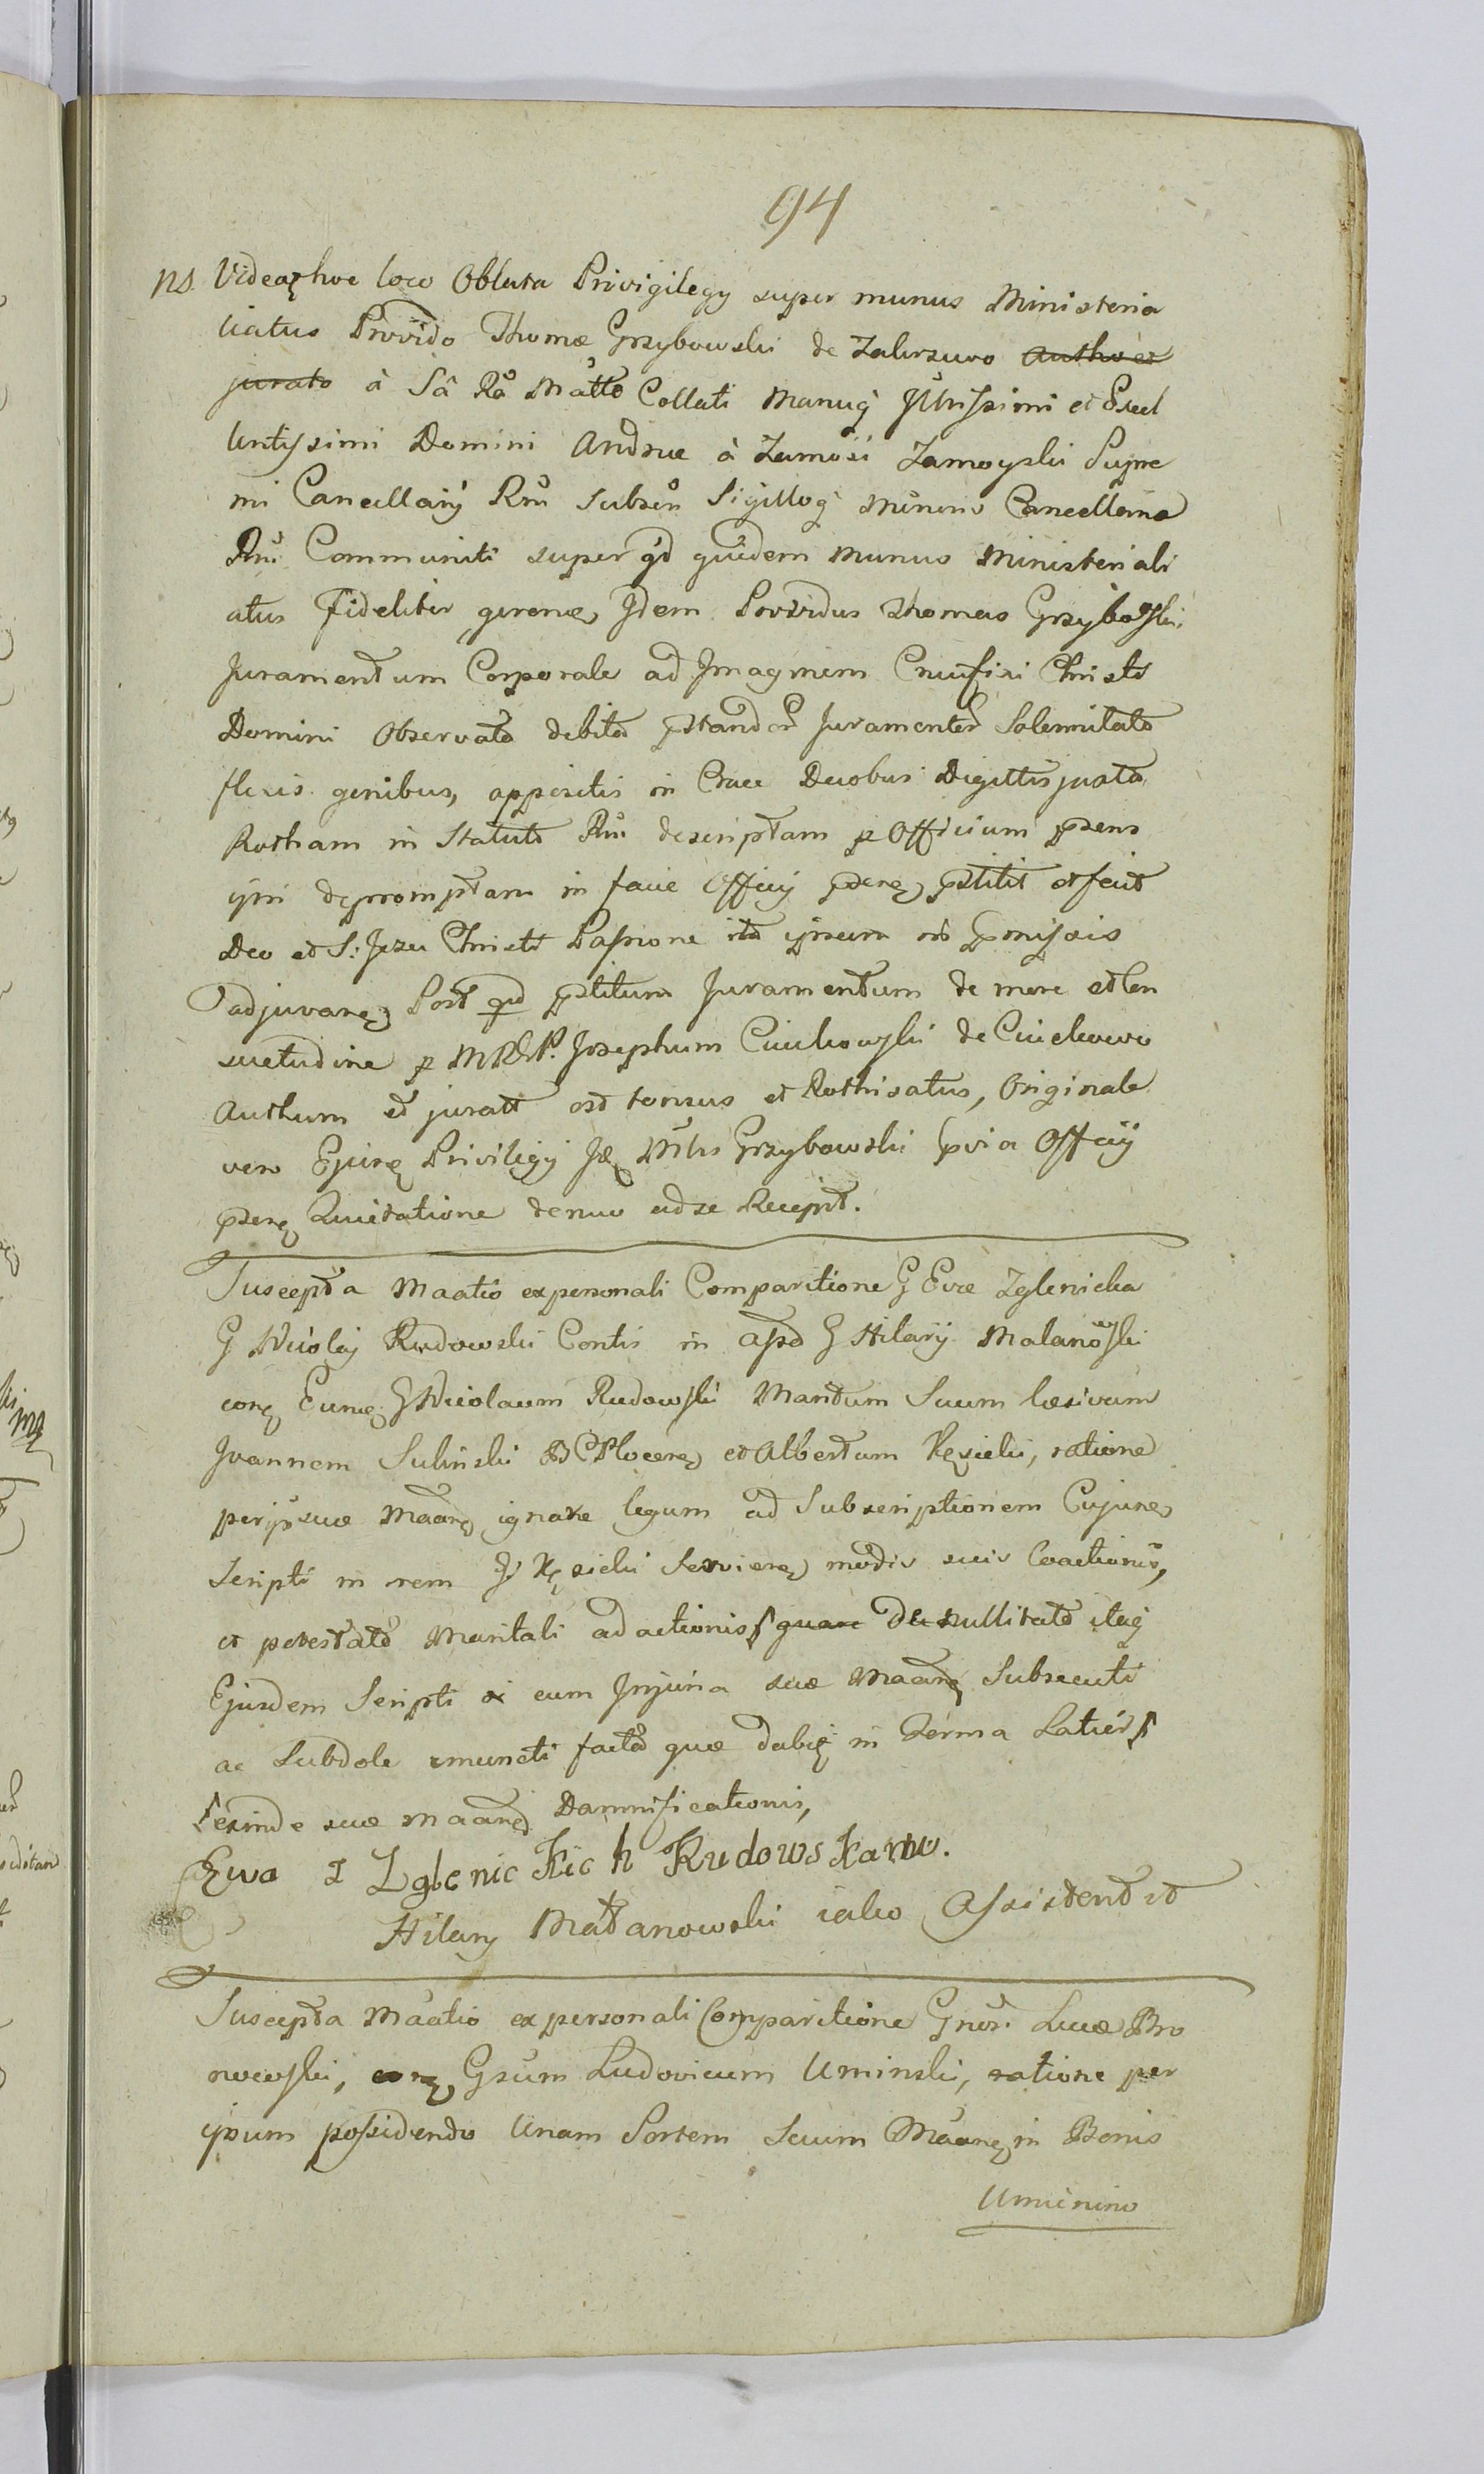 94
NB. Videaꝝ hoc loco Oblata Privigilegy super munus Ministeria
liatus Provido Thomæ Grzybowski de Zakrzewo Autho et
jurato à Sâ Râ Mātte Collati Manuq Jllrissimi et Excel
lentyssimi Domini Andreæ à Zamość Zamoyski Supre
mi Cancellarÿ Rni Subsen Sigilloq minoris Cancellariæ
Rni Communiti super qd quidem munus Ministeriali
atus Fideliter gerenꝝ Jdem Providus Thomas Grzybowski
Juramentum Corporale ad Jmaginem Crucifixi Christi
Domini Observata debita pstandor Juramentor Solemnitate
flexis genibus, appositis in Cruce Duobus Digittis juxta
Rotham in Statuto Rni descriptam p Officium psens
ipsi depromptam in facie Officij psenꝝ pstitit et fecit
Deo et S: Jezu Christi Passione ita ipsum in pmissis
adjuvanꝝ Post qd pstitum Juramentum de more et Con
suetudine p MRP. Josephum Ciechowski de Ciechowo
Authum et juratt est tonsus et Rothisatus, Originale
vero Ejusꝝ Privilegij Jꝝ Mtrs Grzybowski pvia Officij
psenꝝ Quietatione denuo ad se Recepit.
Suscepta Maatio ex personali Comparitione G Evæ Zglenicka
G Nicolai Rudowski Contis in assa G Hilarÿ Małanowski
conꝝ Eunꝝ G Nicolaum Rudowski Maritum Suum læsivum
Joannem Suliński BC Plocenꝝ et Albertum Kęsicki, ratione
per ips suæ Maanꝝ ignare legum ad Subscriptionem Cujusꝝ
Scripti in rem G Kęsicki Servienꝝ modis suis Coactionis,
et potestate Maritali adactionis quare De nullitate itaq
Ejusdem Scripti ex cum Jnjuria suæ Maanꝝ Subsecuti
ac Subdole emuncti facta quæ dabiꝝ in Termo Latier
exinde suæ Maanꝝ Damnificationis,
Ewa z Zglenickich Rudowska mw.
Hilary Małanowski iako Assistent it
Suscepta Maatio ex personali Comparitione Gnosi Lucæ Bro
nowski, conꝝ Gsum Ludovicum Uminski, ratione per
ipsum possidendo Unam Sortem Suum Maanꝝ in Bonis
Umienino